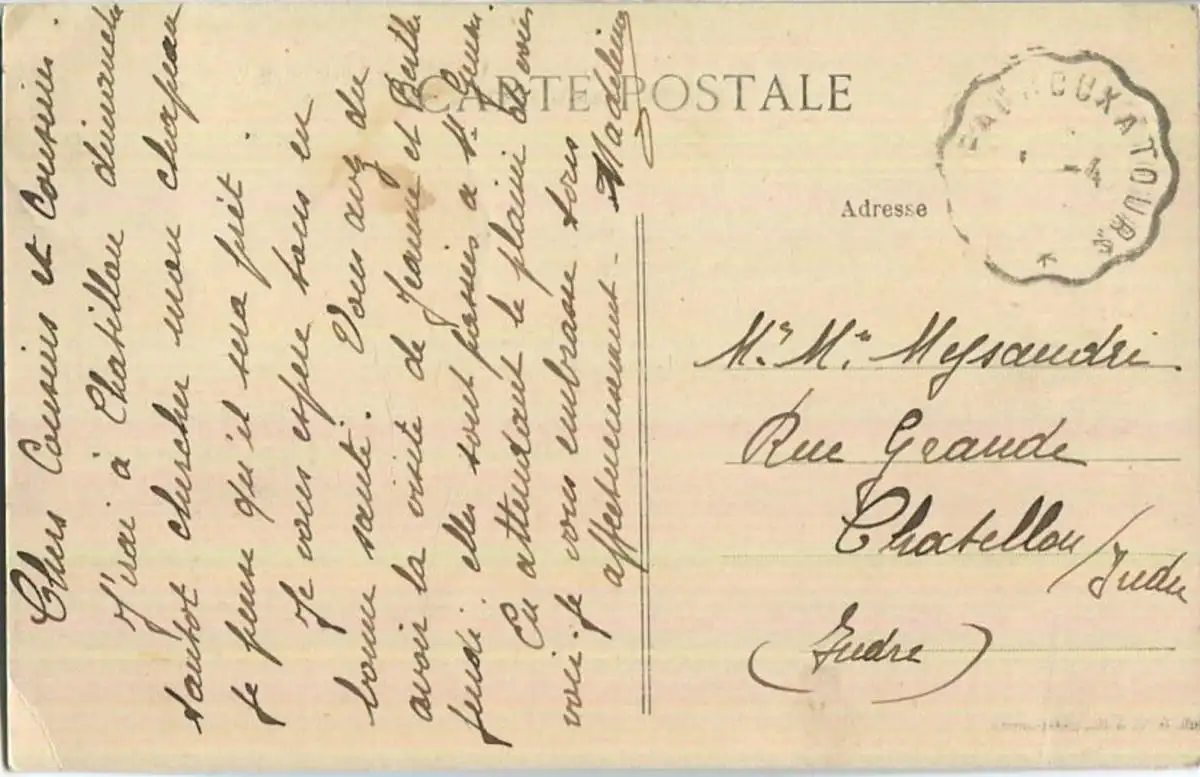 CARTE POSTALE
Adresse
CHATEAUROUX A TOURS
4
Chers Cousins et Cousine.
J'irai à Chatillon dimanche
tantot chercher mon chapeau
je pense qu'il sera prêt
Je vous espere tous en
bonne santé. Vous avez du
avoir la visite de Jeanne et Berthe
jeudi elles sont passées à St Genou.
En attendant le plaisir de vous
voir. je vous embrasse tous
affectueusement -
Madeleine
Mr Me Meysandri.
Rue Grande
Chatillon / Indre
(Indre)